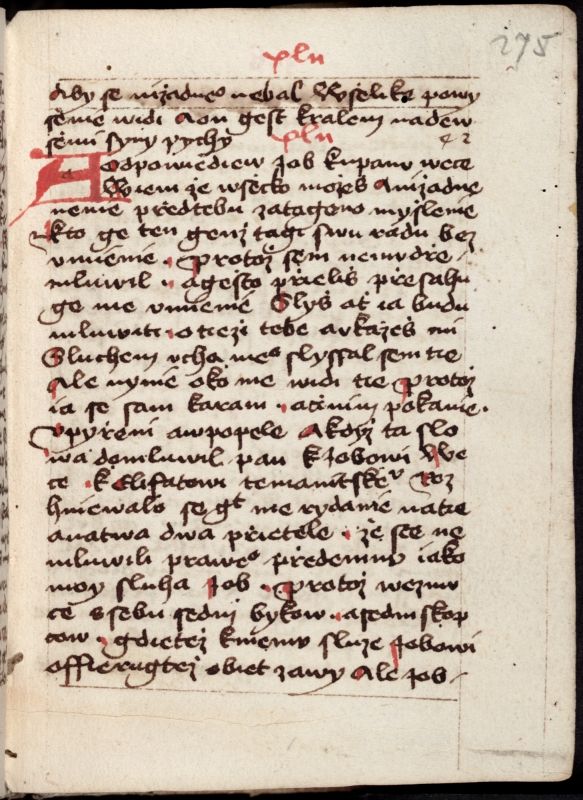 xlii
275
Aby se nizadneo nebal Wsselike powy
ssenie widi A on gest kralem nadew
ssemi syny pychy
xlii
42
A odpowiediew Job ku panu wece
Wiem ze wsecko mozes A nizadne
nenie przed tebu zatageno myslenie
kto ge ten genz tagi swu radu bez
vmienie · protoz sem nemudrze
mluwil · a gesto przielis przesahu
ge me vmienie Slys at ia budu
mluwiti otiezi tebe a vkazes mi
Sluchem vcha meo slyssal sem tie
Ale nynie oko me widi tie protoz
ia se sam karam · a czinim pokanie ·
v pyrzeni a w popele A kdyz ta slo
wa domluwil pan k Jobowi We
ce · k Elifatowi temanitskeu Roz
hniewalo se gt me rydanie na tie
a na twa dwa przietele · ze ste ne
mluwili praweo przedemnu iako
moy sluha Job · protoz wezmu
ce s sebu sedm bykow · a sedm skop
cow · gdietez k niemu sluze Jobowi
offierugtez obiet za wy Ale Job